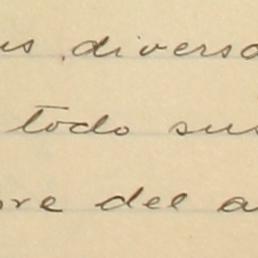 us diverso
todo sus
bre del a